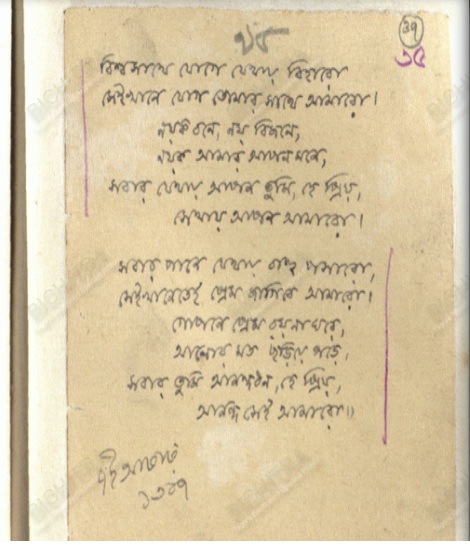 ৩৭
৩৫
বিশ্বসাথে যোগে যেথায় বিহারো
সেইখানে যোগ তোমার সাথে আমারো।
নয়ক বনে, নয় বিজনে,
নয়ক আমার আপন মনে,
সবার যেথায় আপন তুমি, হে প্রিয়,
সেথায় আপন আমারো।
সবার পানে যেথায় বাহু পসারো,
সেইখানেতেই প্রেম জাগিবে আমারো।
গোপনে প্রেম রয়না ঘরে,
আলোর মত ছড়িয়ে পড়ে,
সবার তুমি আনন্দধন, হে প্রিয়,
আনন্দ সেই আমারো॥
আষাঢ়
১৩১৭
BICHITRA